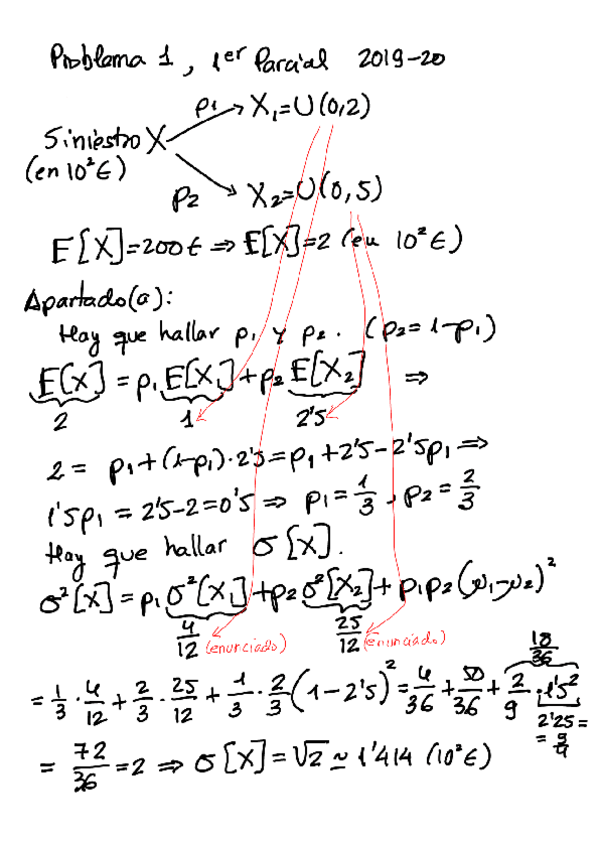 Problema 1, 1er Parcial 2019-20
p1 X1=U(0,2)
Siniestro X
(en 10²€)
p2 X2=U(0,5)
E[X]=200€ ⇒ E[X]=2 (en 10²€)
Apartado(a):
Hay que hallar p1 y p2. (p2=1-p1)
E[X] = p1 E[X1] + p2 E[X2] ⇒
2 1 2'5
2 = p1+(1-p1)·2'5=p1+2'5-2'5p1 ⇒
1'5p1 = 2'5-2=0'5 ⇒ p1=1/3, p2=2/3
Hay que hallar σ[X].
σ²[X]=p1 σ²[X1]+p2 σ²[X2]+p1p2(μ1-μ2)²
4/12 (enunciado) 25/12 (enunciado)
18/36
=1/3·4/12+2/3·25/12+1/3·2/3(1-2'5)²=4/36+50/36+2/9·1'5²
2'25=
=9/4
=72/36=2 ⇒ σ[X]=√2≃1'414 (10²€)